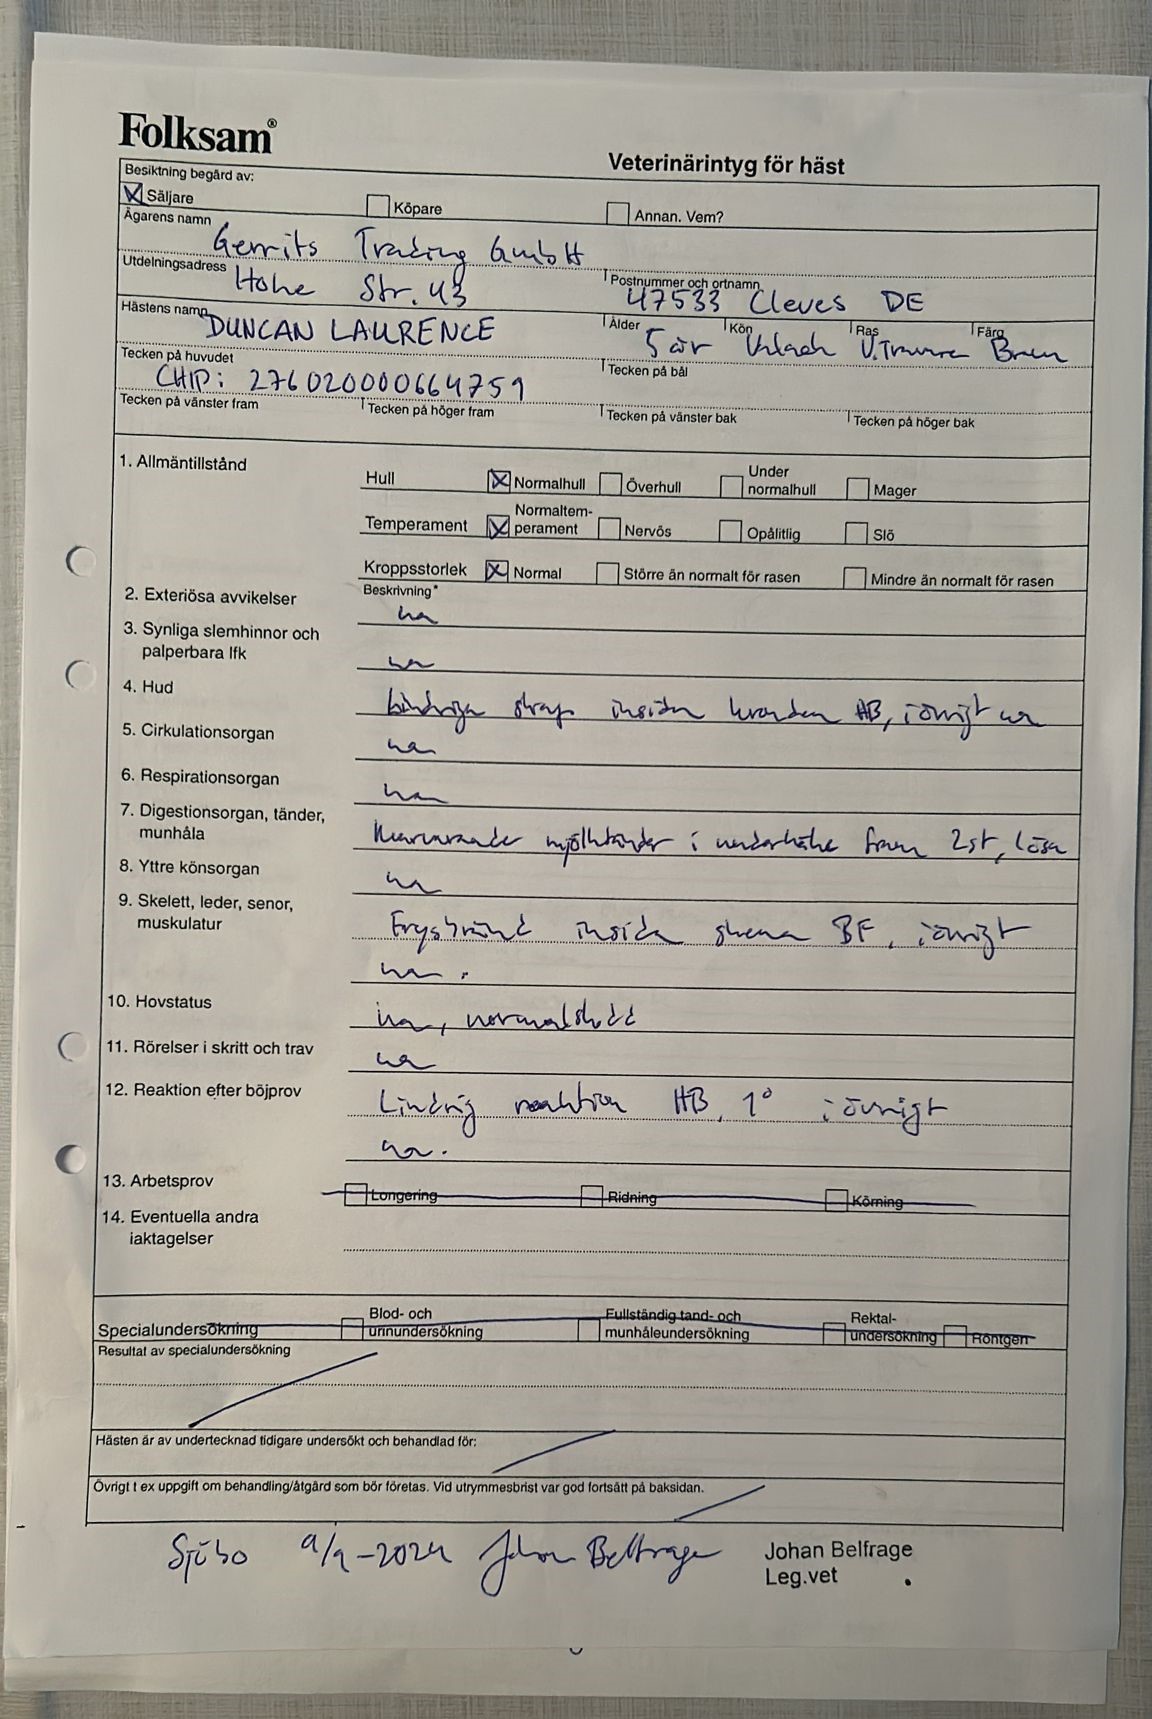 Folksam®
Veterinärintyg för häst
Besiktning begärd av:
Säljare Köpare Annan. Vem?
Ägarens namn
Gerrits Trading GmbH
Utdelningsadress Postnummer och ortnamn
Hohe Str. 43 47533 Cleves DE
Hästens namn Ålder Kön Ras Färg
DUNCAN LAURENCE 5 år Valack V.Travare Brun
Tecken på huvudet Tecken på bål
CHIP: 276020000664759
Tecken på vänster fram Tecken på höger fram Tecken på vänster bak Tecken på höger bak
1. Allmäntillstånd
Hull Normalhull Överhull Under normalhull Mager
Temperament Normaltem-perament Nervös Opålitlig Slö
Kroppsstorlek Normal Större än normalt för rasen Mindre än normalt för rasen
Beskrivning*
2. Exteriösa avvikelser ua
3. Synliga slemhinnor och
palperbara lfk ua
4. Hud lindriga skrap insidan HB, i övrigt ua
5. Cirkulationsorgan ua
6. Respirationsorgan ua
7. Digestionsorgan, tänder,
munhåla Kvarvarande mjölktänder i underkäke fram 2st, lösa
8. Yttre könsorgan ua
9. Skelett, leder, senor,
muskulatur Frysbränd insida skena BF, i övrigt
ua.
10. Hovstatus ua, normalskodd
11. Rörelser i skritt och trav ua
12. Reaktion efter böjprov Lindrig reaktion HB, 1° i övrigt
ua.
13. Arbetsprov Longering Ridning Körning
14. Eventuella andra
iaktagelser
Specialundersökning Blod- och urinundersökning Fullständig tand- och munhåleundersökning Rektal-undersökning Röntgen
Resultat av specialundersökning
Hästen är av undertecknad tidigare undersökt och behandlad för:
Övrigt t ex uppgift om behandling/åtgärd som bör företas. Vid utrymmesbrist var god fortsätt på baksidan.
Sjöbo 9/9-2024 Johan Belfrage
Johan Belfrage
Leg.vet